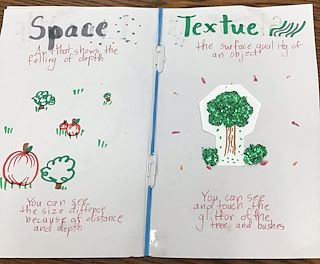 Space
Art that shows the
felling of depth
You can see
the size diffence
because of distance
and depth
Textue
the surface quality of
an object
You can see
and touch the
glittor of the
trees and bushes